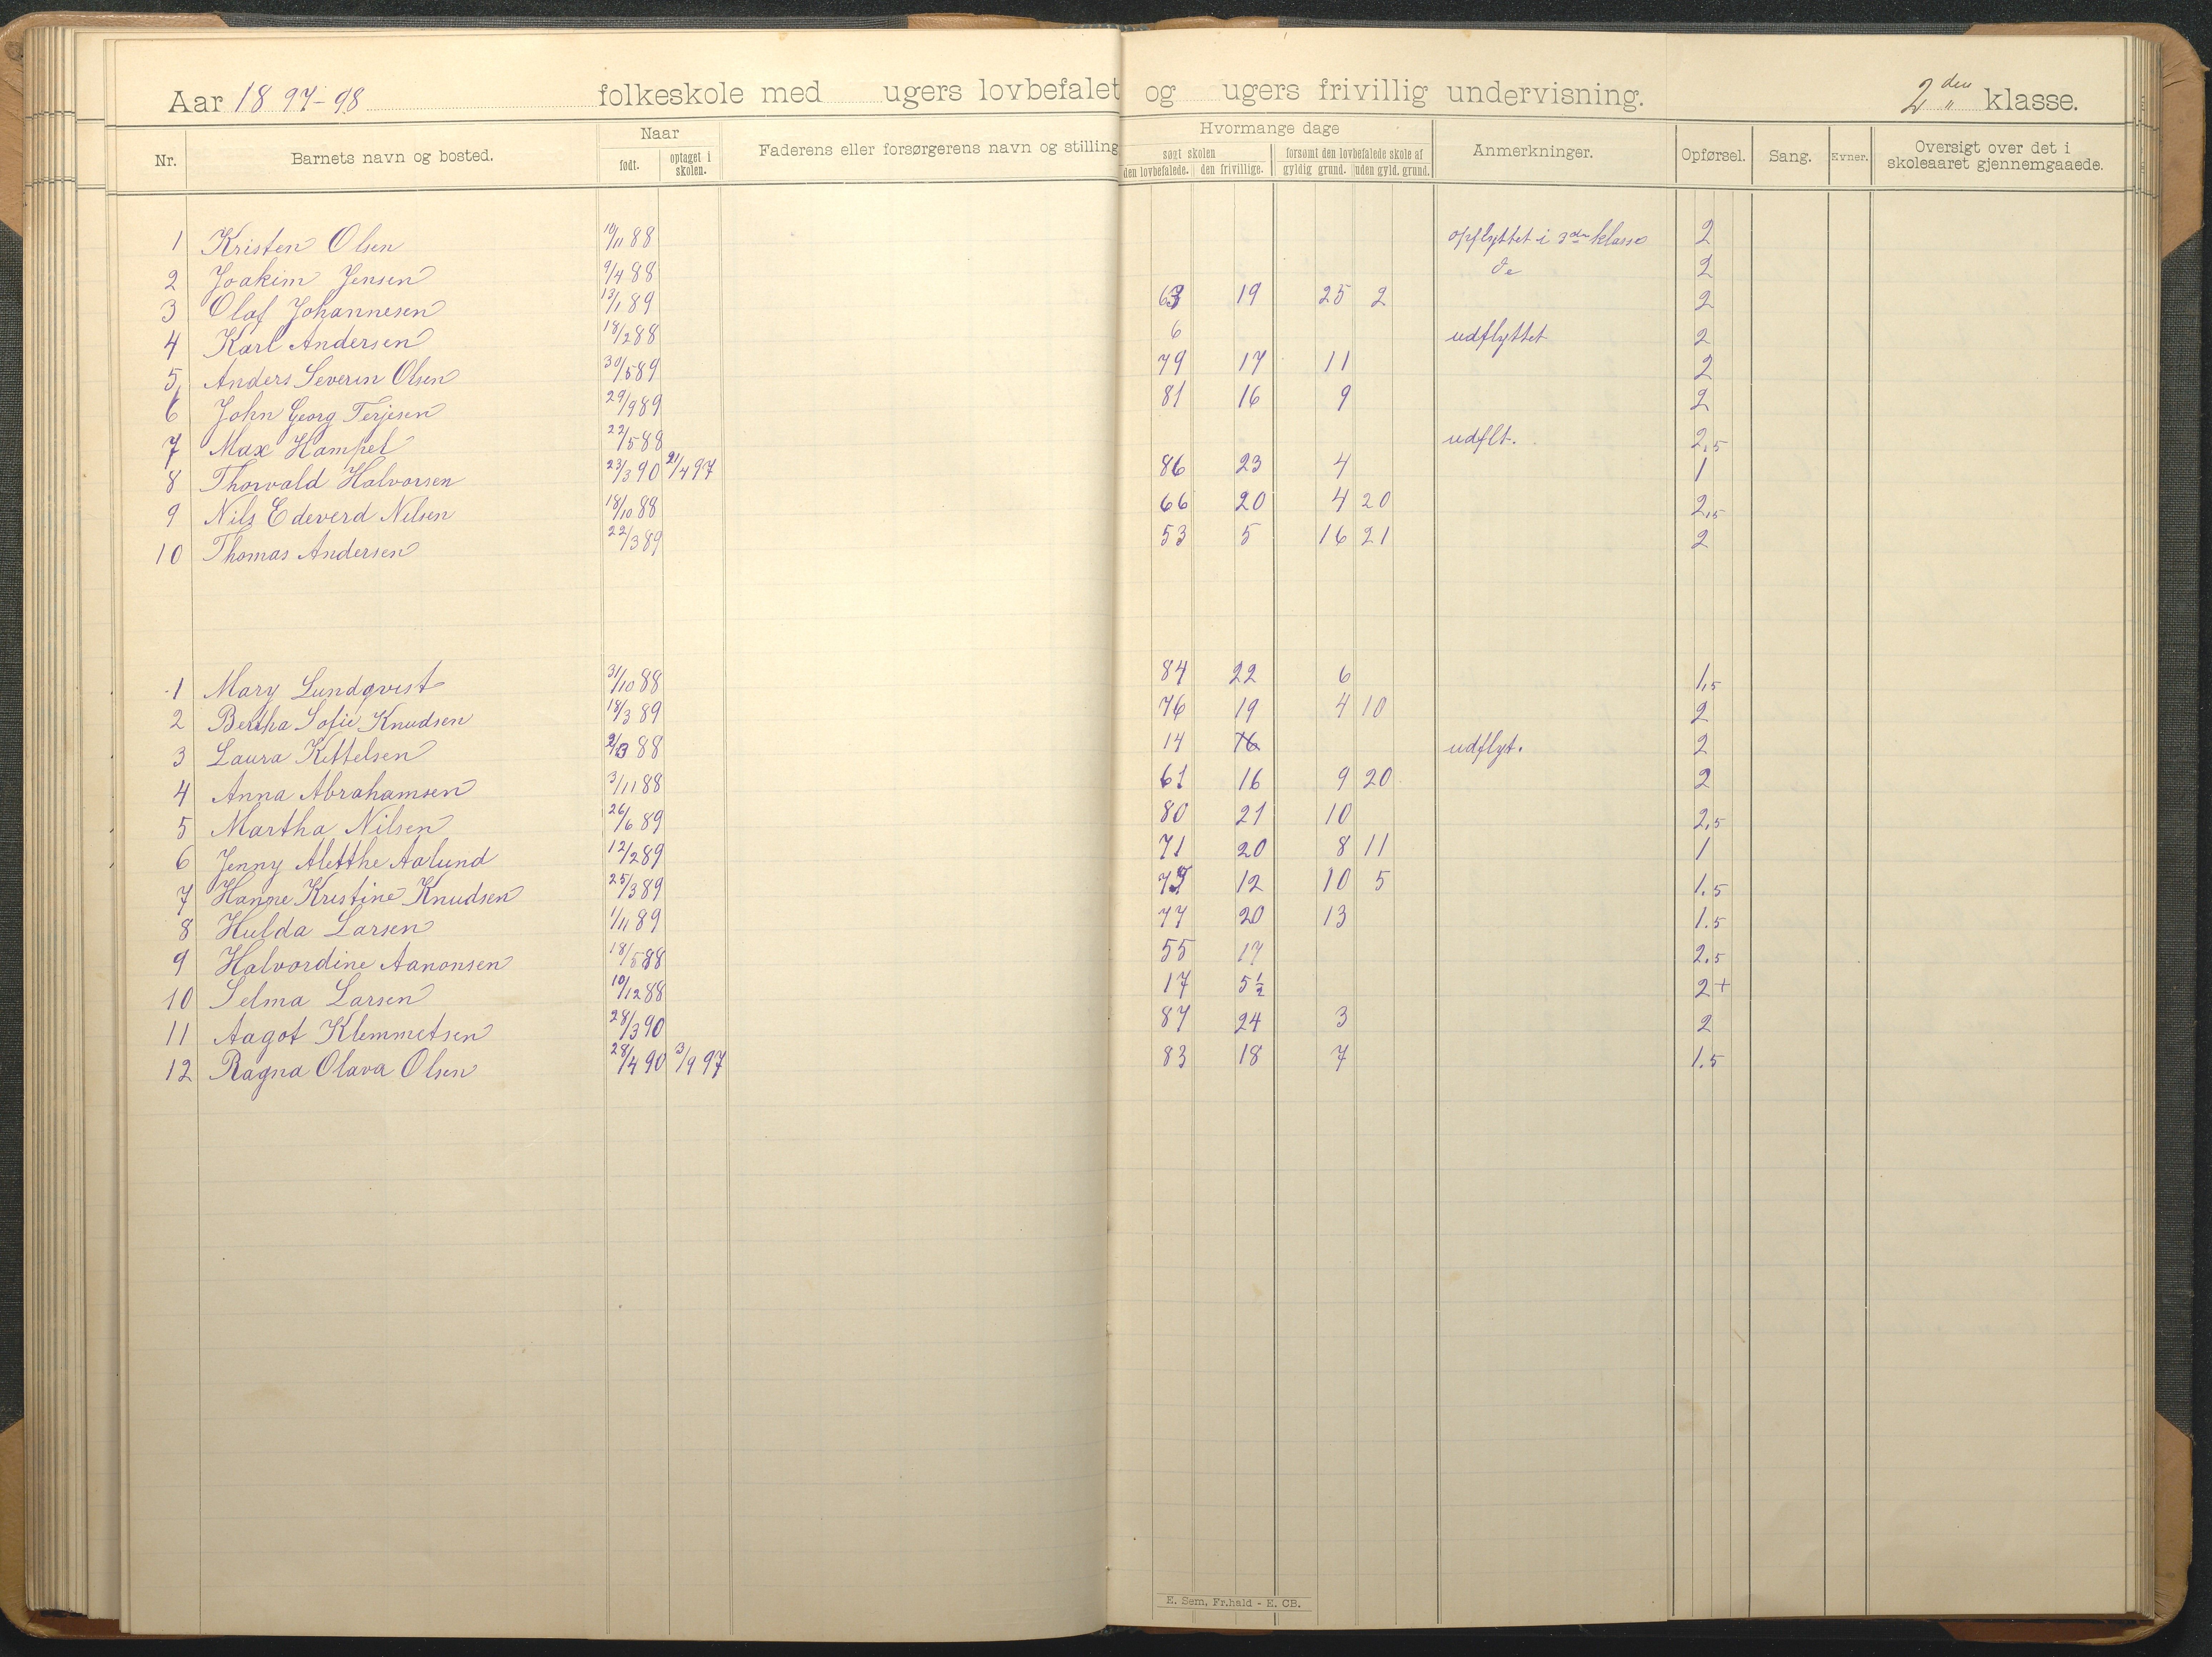 Aar 1897-98 folkeskole med ugers lovbefalet og ugers frivillig undervisning. 2den klasse.
Nr. Barnets navn og bosted. Naar født. optaget i skolen. Faderens eller forsørgerens navn og stilling Hvormange dage søgt skolen den lovbefalede. den frivillige. forsømt den lovbefalede skole af gyldig grund. uden gyld. grund. Anmerkninger. Opførsel. Sang. Evner. Oversigt over det i skoleaaret gjennemgaaede.
1 Kristen Olsen 10/11 88 opflyttet i 3die klasse 2
2 Joakim Jensen 9/4 88 do 2
3 Olaf Johannesen 13/1 89 63 19 25 2 2
4 Karl Andersen 18/2 88 6 udflyttet 2
5 Anders Severin Olsen 30/5 89 79 17 11 2
6 John Georg Terjesen 29/9 89 81 16 9 2
7 Max Hampel 22/5 88 udflt. 2,5
8 Thorvald Halvorsen 23/3 90 21/4 97 86 23 4 1
9 Nils Edeverd Nilsen 18/10 88 66 20 4 20 2,5
10 Thomas Andersen 22/3 89 53 5 16 21 2
1 Mary Lundqvist 31/10 88 84 22 6 1,5
2 Bertha Sofie Knudsen 18/3 89 76 19 4 10 2
3 Laura Kettelsen 88 14 16 udflyt. 2
4 Anna Abrahamsen 3/11 88 61 16 9 20 2
5 Martha Nilsen 26/6 89 80 21 10 2,5
6 Jenny Aletthe Aalund 12/2 89 71 20 8 11 1
7 Hanne Kristine Knudsen 25/3 89 12 10 5 1.5
8 Hulda Larsen 1/11 89 77 20 13 1.5
9 Halvordine Aanonsen 18/5 88 55 17 2.5
10 Selma Larsen 10/12 88 17 5 1/2 2+
11 Aagot Klemmetsen 28/3 90 87 24 3 2
12 Ragna Olava Olsen 28/4 90 3/9 97 83 18 7 1.5
E. Sem, Fr.hald - E. CB.